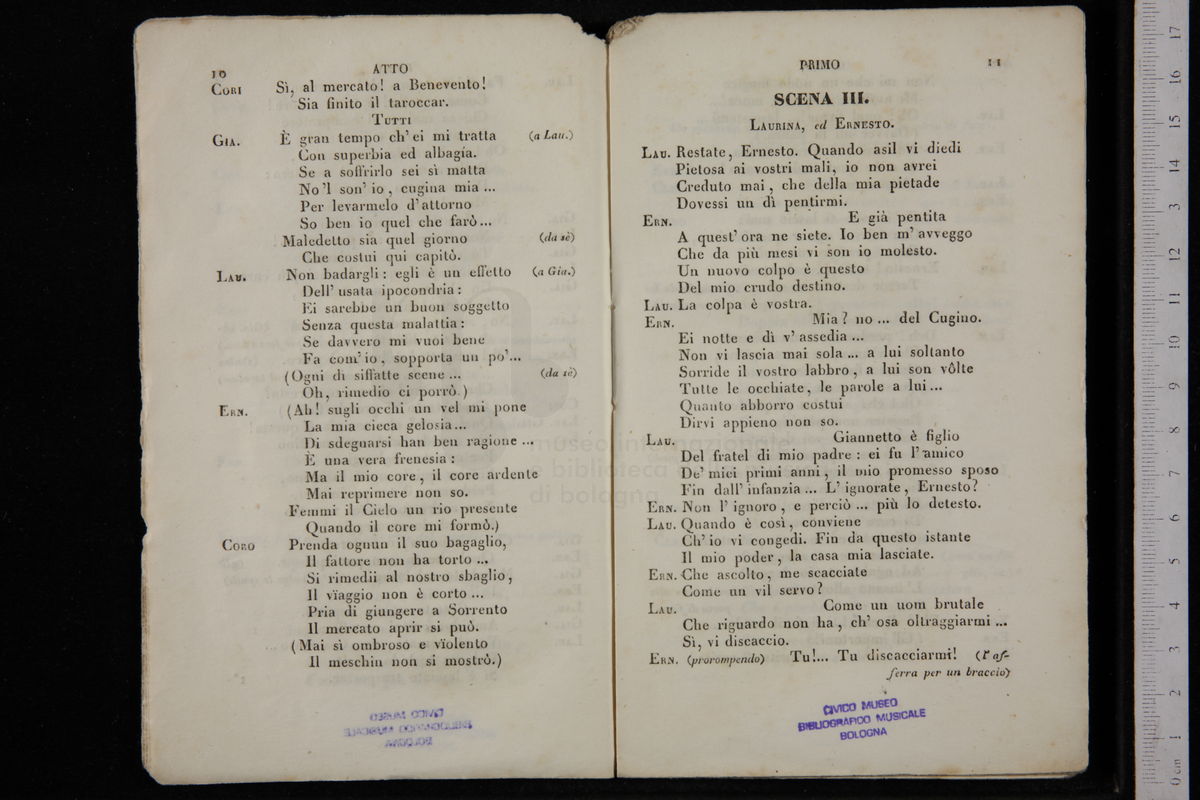 10 ATTO
CORI Sì, al mercato! a Benevento!
Sia finito il taroccar.
TUTTI
GIA. È gran tempo ch' ei mi tratta (a Lau.)
Con superbia ed albagía.
Se a soffrirlo sei sì matta
No 'l son' io, cugina mia ...
Per levarmelo d' attorno
So ben io quel che farò ...
Maledetto sia quel giorno (da sè)
Che costui qui capitò.
LAU. Non badargli: egli è un effetto (a Gia.)
Dell' usata ipocondria:
Ei sarebbe un buon soggetto
Senza questa malattia:
Se davvero mi vuoi bene
Fa com' io, sopporta un po'...
(Ogni dì siffatte scene ... (da sè)
Oh, rimedio ci porrò.)
ERN. (Ah! sugli occhi un vel mi pone
La mia cieca gelosia...
Di sdegnarsi han ben ragione ...
È una vera frenesia:
Ma il mio core, il core ardente
Mai reprimere non so.
Femmi il Cielo un rio presente
Quando il core mi formò.)
CORO Prenda ognun il suo bagaglio,
Il fattore non ha torto ...
Si rimedii al nostro sbaglio,
Il vïaggio non è corto ...
Pria di giungere a Sorrento
Il mercato aprir si può.
(Mai sì ombroso e vïolento
Il meschin non si mostrò.)
CIVICO MUSEO
BIBLIOGRAFICO MUSICALE
BOLOGNA
PRIMO 11
SCENA III.
LAURINA, ed ERNESTO.
LAU. Restate, Ernesto. Quando asil vi diedi
Pietosa ai vostri mali, io non avrei
Creduto mai, che della mia pietade
Dovessi un dì pentirmi.
ERN. E già pentita
A quest' ora ne siete. Io ben m' avveggo
Che da più mesi vi son io molesto.
Un nuovo colpo è questo
Del mio crudo destino.
LAU. La colpa è vostra.
ERN. Mia? no ... del Cugino.
Ei notte e dì v' assedia ...
Non vi lascia mai sola ... a lui soltanto
Sorride il vostro labbro, a lui son vôlte
Tutte le occhiate, le parole a lui...
Quanto abborro costui
Dirvi appieno non so.
LAU. Giannetto è figlio
Del fratel di mio padre: ei fu l' amico
De' miei primi anni, il mio promesso sposo
Fin dall' infanzia ... L' ignorate, Ernesto?
ERN. Non l' ignoro, e perciò ... più lo detesto.
LAU. Quando è così, conviene
Ch' io vi congedi. Fin da questo istante
Il mio poder, la casa mia lasciate.
ERN. Che ascolto, me scacciate
Come un vil servo?
LAU. Come un uom brutale
Che riguardo non ha, ch' osa oltraggiarmi ...
Sì, vi discaccio.
ERN. (prorompendo) Tu!... Tu discacciarmi! (l' af-
ferra per un braccio)
CIVICO MUSEO
BIBLIOGRAFICO MUSICALE
BOLOGNA
museo internazionale
e biblioteca
di bologna
0 cm 1 2 3 4 5 6 7 8 9 10 11 12 13 14 15 16 17